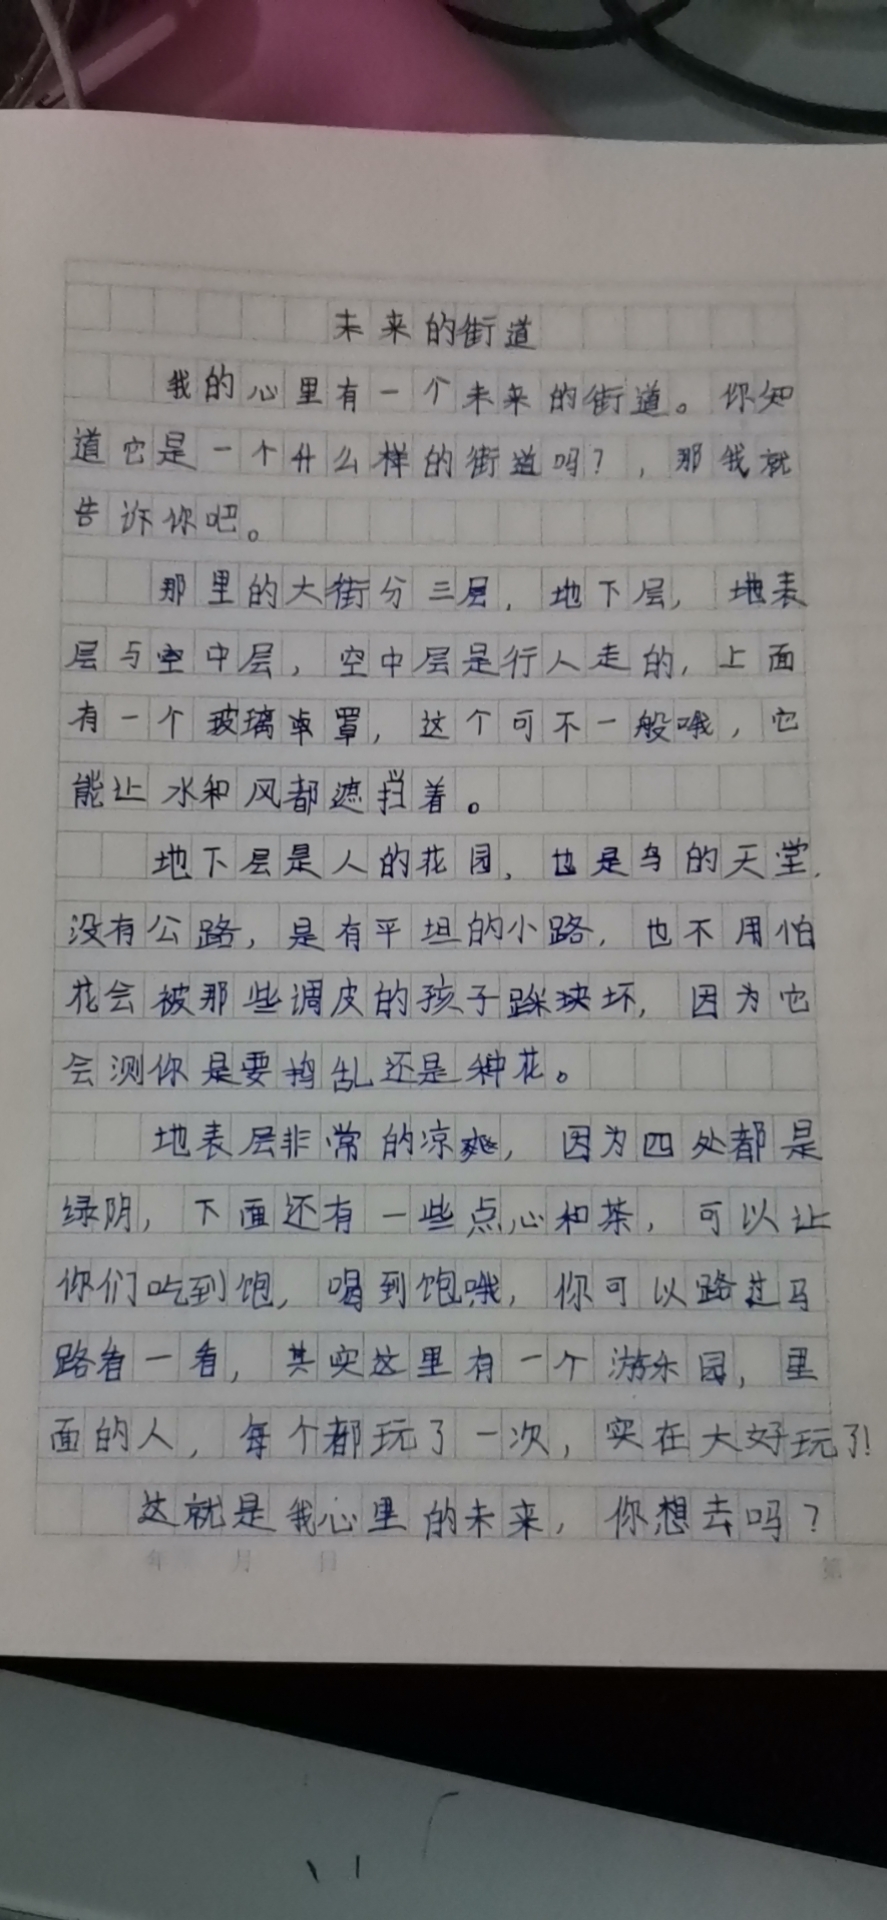 未来的街道
我的心里有一个未来的街道。你知
道它是一个什么样的街道吗？，那我就
告诉你吧。
那里的大街分三层，地下层，地表
层与空中层，空中层是行人走的，上面
有一个玻璃罩，这个可不一般哦，它
能让水和风都遮挡着。
地下层是人的花园，也是鸟的天堂，
没有公路，是有平坦的小路，也不用怕
花会被那些调皮的孩子踩坏，因为它
会测你是要捣乱还是种花。
地表层非常的凉爽，因为四处都是
绿阴，下面还有一些点心和茶，可以让
你们吃到饱，喝到饱哦，你可以路过马
路看一看，其实这里有一个游乐园，里
面的人，每个都玩了一次，实在大好玩了！
这就是我心里的未来，你想去吗？
年 月 日
第